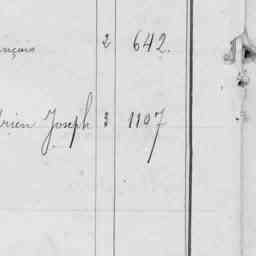 ançois 2 642.
rien Joseph 3 1107